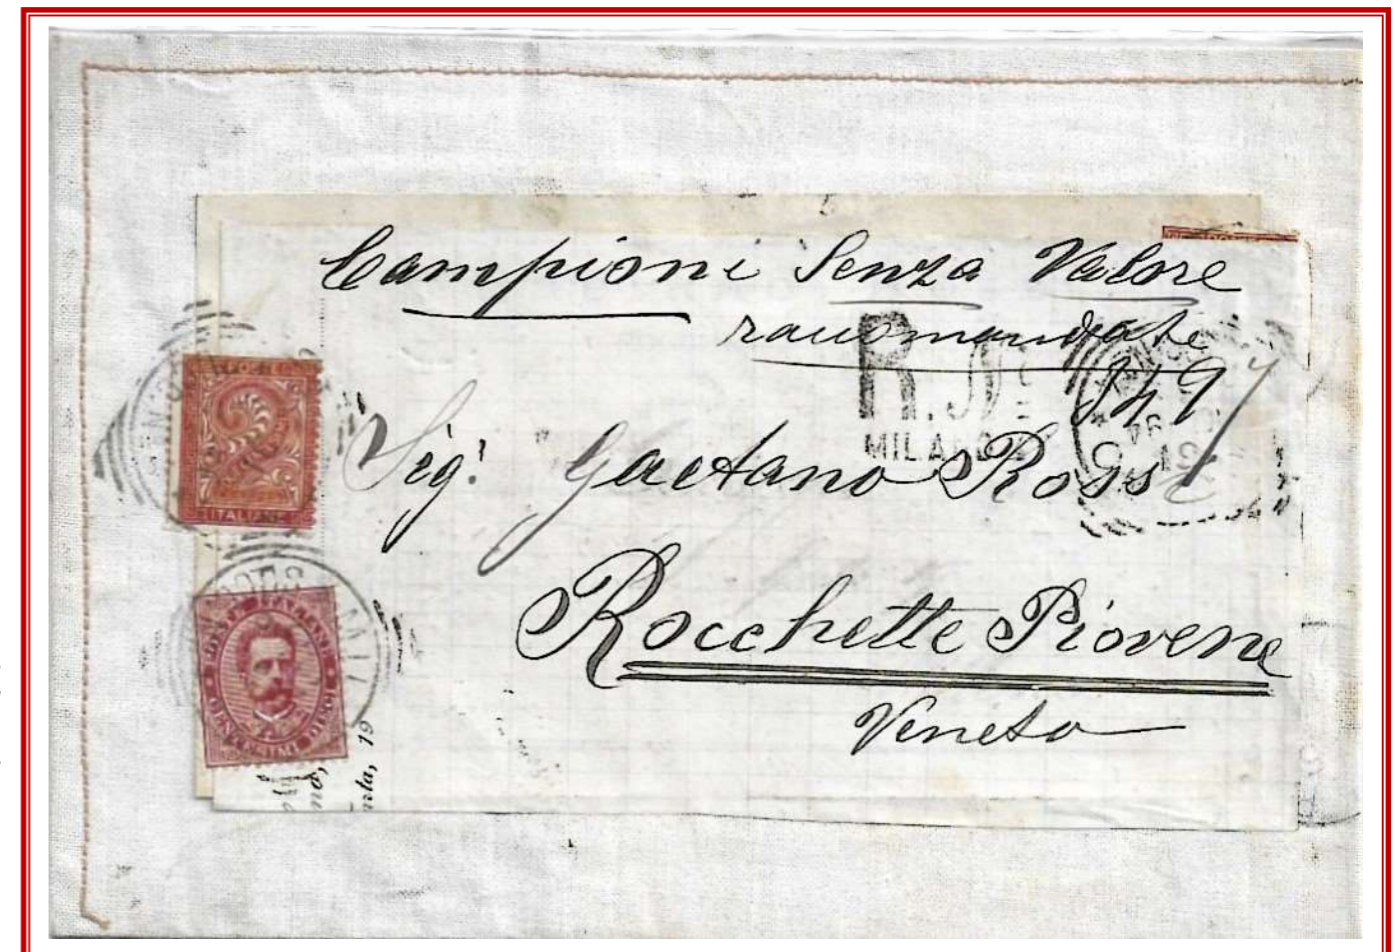 Campioni Senza Valore
raccomandate
R. N°
849
MILANO
Sig.r Gaetano Rossi
Rocchette Piovene
Veneto
POSTE
ITALIANE
POSTE ITALIANE
CENTESIMI DIECI
19